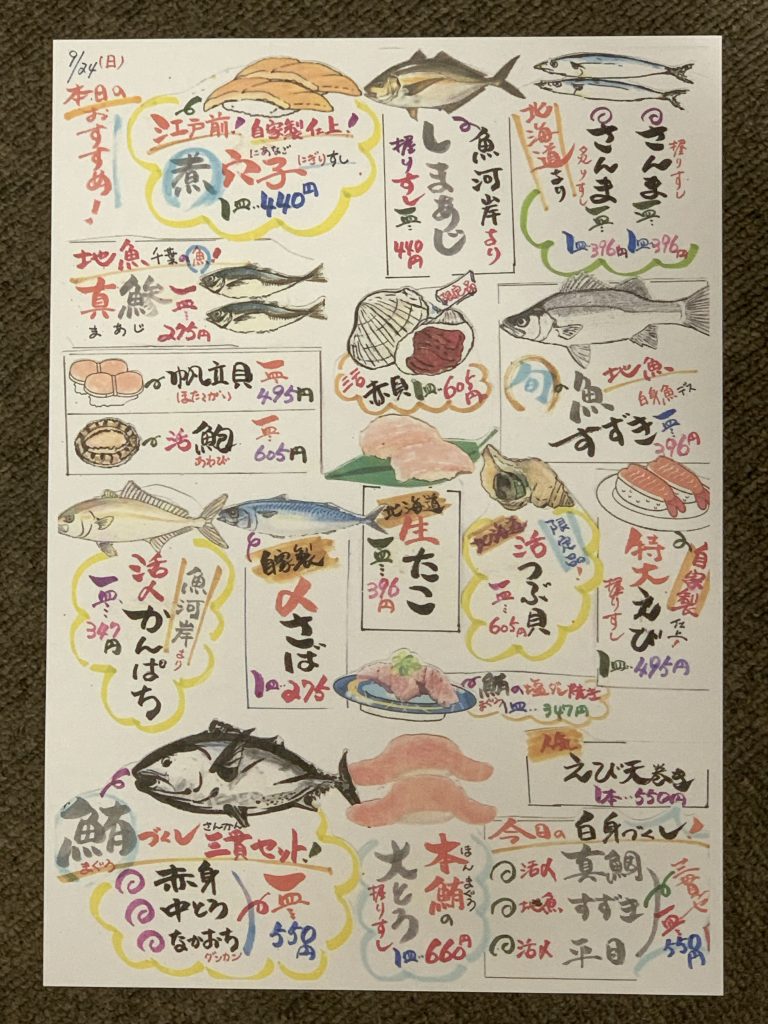 9/24(日)
本日の
おすすめ!
江戸前!自家製仕上!
煮穴子
にあなご
にぎりすし
1皿‥440円
魚河岸より
しまあじ
握りすし
一皿‥440円
北海道より
さんま
握りすし
一皿‥
1皿‥396円
さんま
炙りすし
一皿‥
1皿‥396円
地魚 千葉の魚!
真鯵
まあじ
一皿‥275円
限定品
活赤貝 1皿‥605円
旬の魚
地魚
白身魚デス
すずき
一皿‥396円
帆立貝
ほたてがい
一皿‥495円
活鮑
あわび
一皿‥605円
魚河岸より
活〆かんぱち
一皿‥347円
自家製
〆さば
1皿‥275
北海道
生たこ
一皿‥396円
北海道
限定品!
活つぶ貝
一皿‥605円
自家製仕上!
特大えび
握りすし
1皿‥495円
鮪の塩
まぐろ
1皿‥347円
人気
えび天巻き
1本‥550円
鮪づくし三貫セット!
まぐろ
さんかん
赤身
中とろ
なかおち
グンカン
一皿‥550円
本鮪の
ほんまぐろ
大とろ
握りすし
1皿‥660円
今日の白身づくし!
活〆 真鯛
地魚 すずき
活〆 平目
一皿‥550円